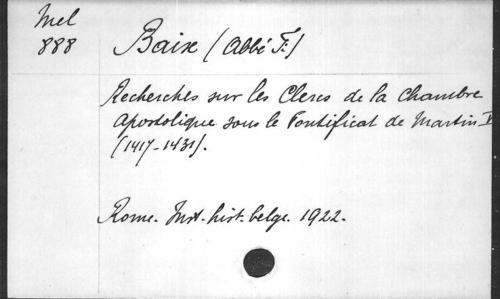 Mel
888
Baix (Abbé F.)
Recherches sur les Clercs de la Chambre
apostolique sous le Pontificat de Martin V
(1417-1431).
Rome. Inst. hist. belge. 1922.